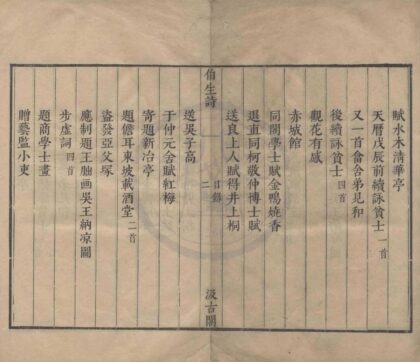 賦水木清華亭
天曆戊辰前續詠貧士一首
又一首會舍弟見和
後續詠貧士四首
觀花有感
赤城館
同閣學士賦金鴨燒香
退直同柯敬仲博士賦
送良上人賦得井上桐
伯生詩
目錄
二
汲古閣
送吳子高
于仲元舍賦紅梅
寄題新冶亭
題儋耳東坡載酒堂二首
盜發亞父塚
應制題王朏画吳王納凉圖
步虛詞四首
題商學士畫
贈藝監小吏